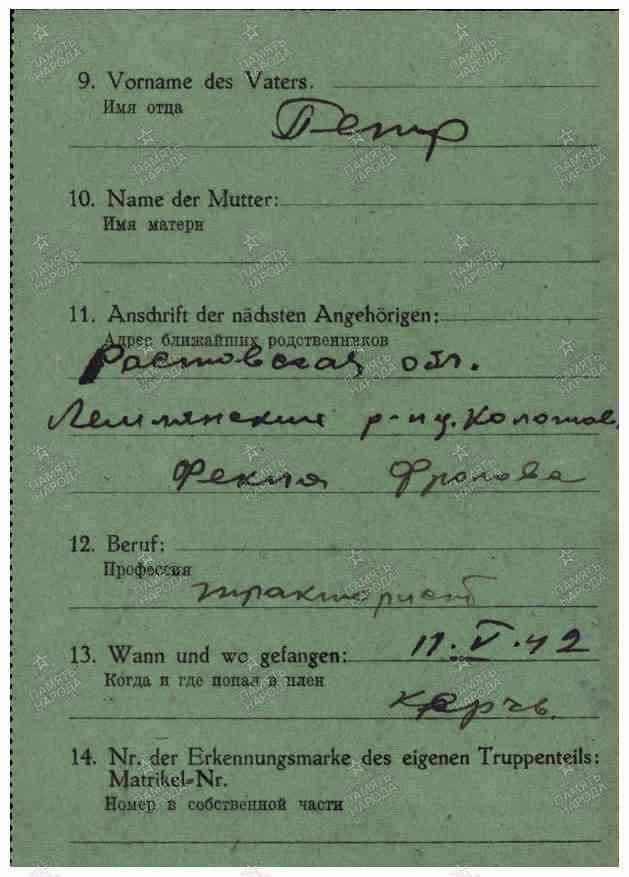 9. Vorname des Vaters.
Имя отца
Петр
10. Name der Mutter:
Имя матери
11. Anschrift der nächsten Angehörigen:
Адрес ближайших родственников
Ростовская обл.
р-н
Фекла Фролова
12. Beruf:
Профессия
тракторист
13. Wann und wo gefangen:
11.V.42
Когда и где попал в плен
Керчь.
14. Nr. der Erkennungsmarke des eigenen Truppenteils:
Matrikel-Nr.
Номер в собственной части